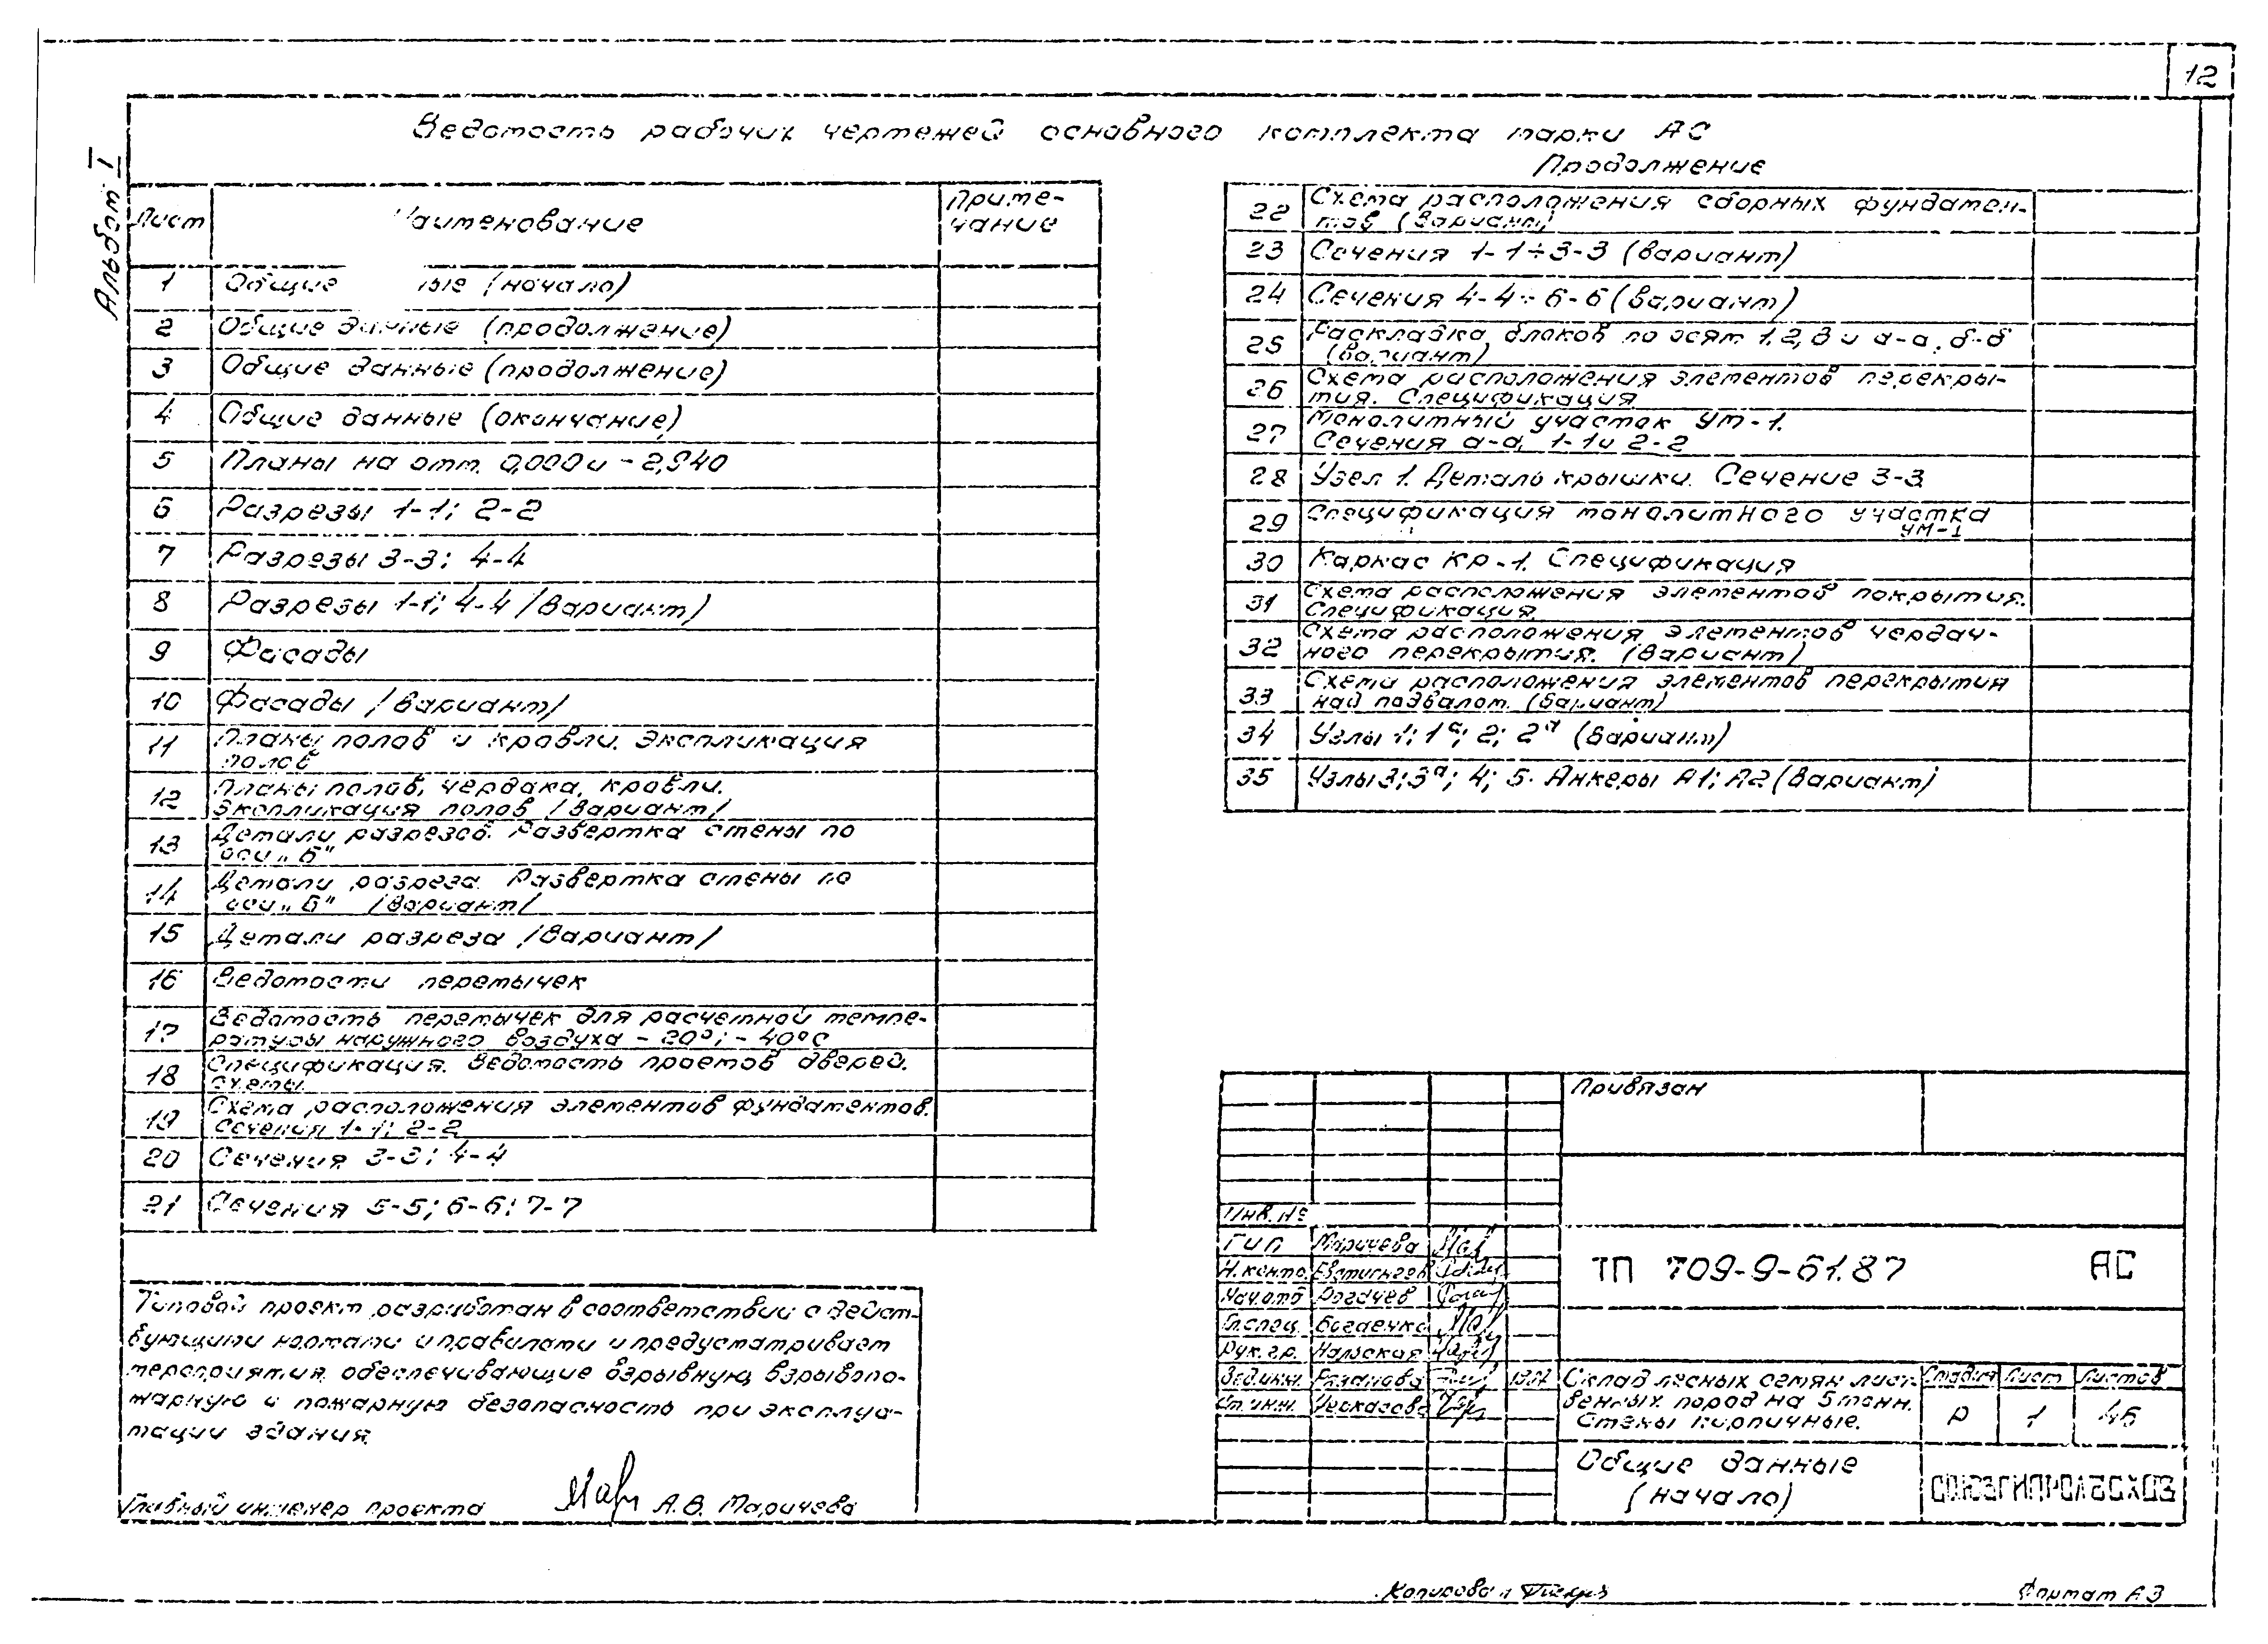 12
Альбом I
Ведомость рабочих чертежей основного комплекта марки АС
Продолжение
Лист Наименование Приме-
чание
1 Общие ные (начало)
2 Общие данные (продолжение)
3 Общие данные (продолжение)
4 Общие данные (окончание)
5 Планы на отм. 0,000 и -2,940
6 Разрезы 1-1; 2-2
7 Разрезы 3-3; 4-4
8 Разрезы 1-1; 4-4 /Вариант/
9 Фасады
10 Фасады /вариант/
11 Планы полов и кровли. Экспликация
полов
12 Планы полов, чердака, кровли.
Экспликация полов /Вариант/
13 Детали разрезов. Развертка стены по
оси „Б"
14 Детали разреза. Развертка стены по
оси „Б" /Вариант/
15 Детали разреза /Вариант/
16 Ведомости перемычек
17 Ведомость перемычек для расчетной темпе-
ратуры наружного воздуха -20°; -40°С
18 Спецификация. Ведомость проемов дверей.
Схемы.
19 Схема расположения элементов фундаментов.
Сечения 1-1; 2-2
20 Сечения 3-3; 4-4
21 Сечения 5-5; 6-6; 7-7
22 Схема расположения сборных фундамен-
тов (Вариант)
23 Сечения 1-1÷3-3 (вариант)
24 Сечения 4-4÷6-6 (вариант)
25 Раскладка блоков по осям 1,2,3 и а-а, б-б
(Вариант)
26 Схема расположения элементов перекры-
тия. Спецификация
27 Монолитный участок УМ-1.
Сечения а-а, 1-1 и 2-2
28 Узел 1. Деталь крышки. Сечение 3-3
29 Спецификация монолитного участка
УМ-1
30 Каркас КР-1. Спецификация
31 Схема расположения элементов покрытия.
Спецификация.
32 Схема расположения элементов чердач-
ного перекрытия. (Вариант)
33 Схема расположения элементов перекрытия
над подвалом. (Вариант)
34 Узлы 1; 1а; 2; 2а (Вариант)
35 Узлы 3; 3а; 4; 5. Анкеры А1; А2 (Вариант)
Типовой проект разработан в соответствии с дейст-
вующими нормами и правилами и предусматривает
мероприятия, обеспечивающие взрывную, взрывопо-
жарную и пожарную безопасность при эксплуа-
тации здания.
Главный инженер проекта А.В. Маричева
Привязан
Инв. №
ГИП Маричева
Н. контр.
Нач. отд Рогачев
Гл. спец. Богаенко
Рук. гр.
Вед. инж. 1987
Ст. инж. Черкасова
ТП 709-9-61.87 АС
Склад лесных семян лист-
венных пород на 5 тонн.
Стены кирпичные.
Стадия Лист Листов
Р 1 46
Общие данные
(начало)
СОЮЗГИПРОЛЕСХОЗ
Копировал
Формат А3